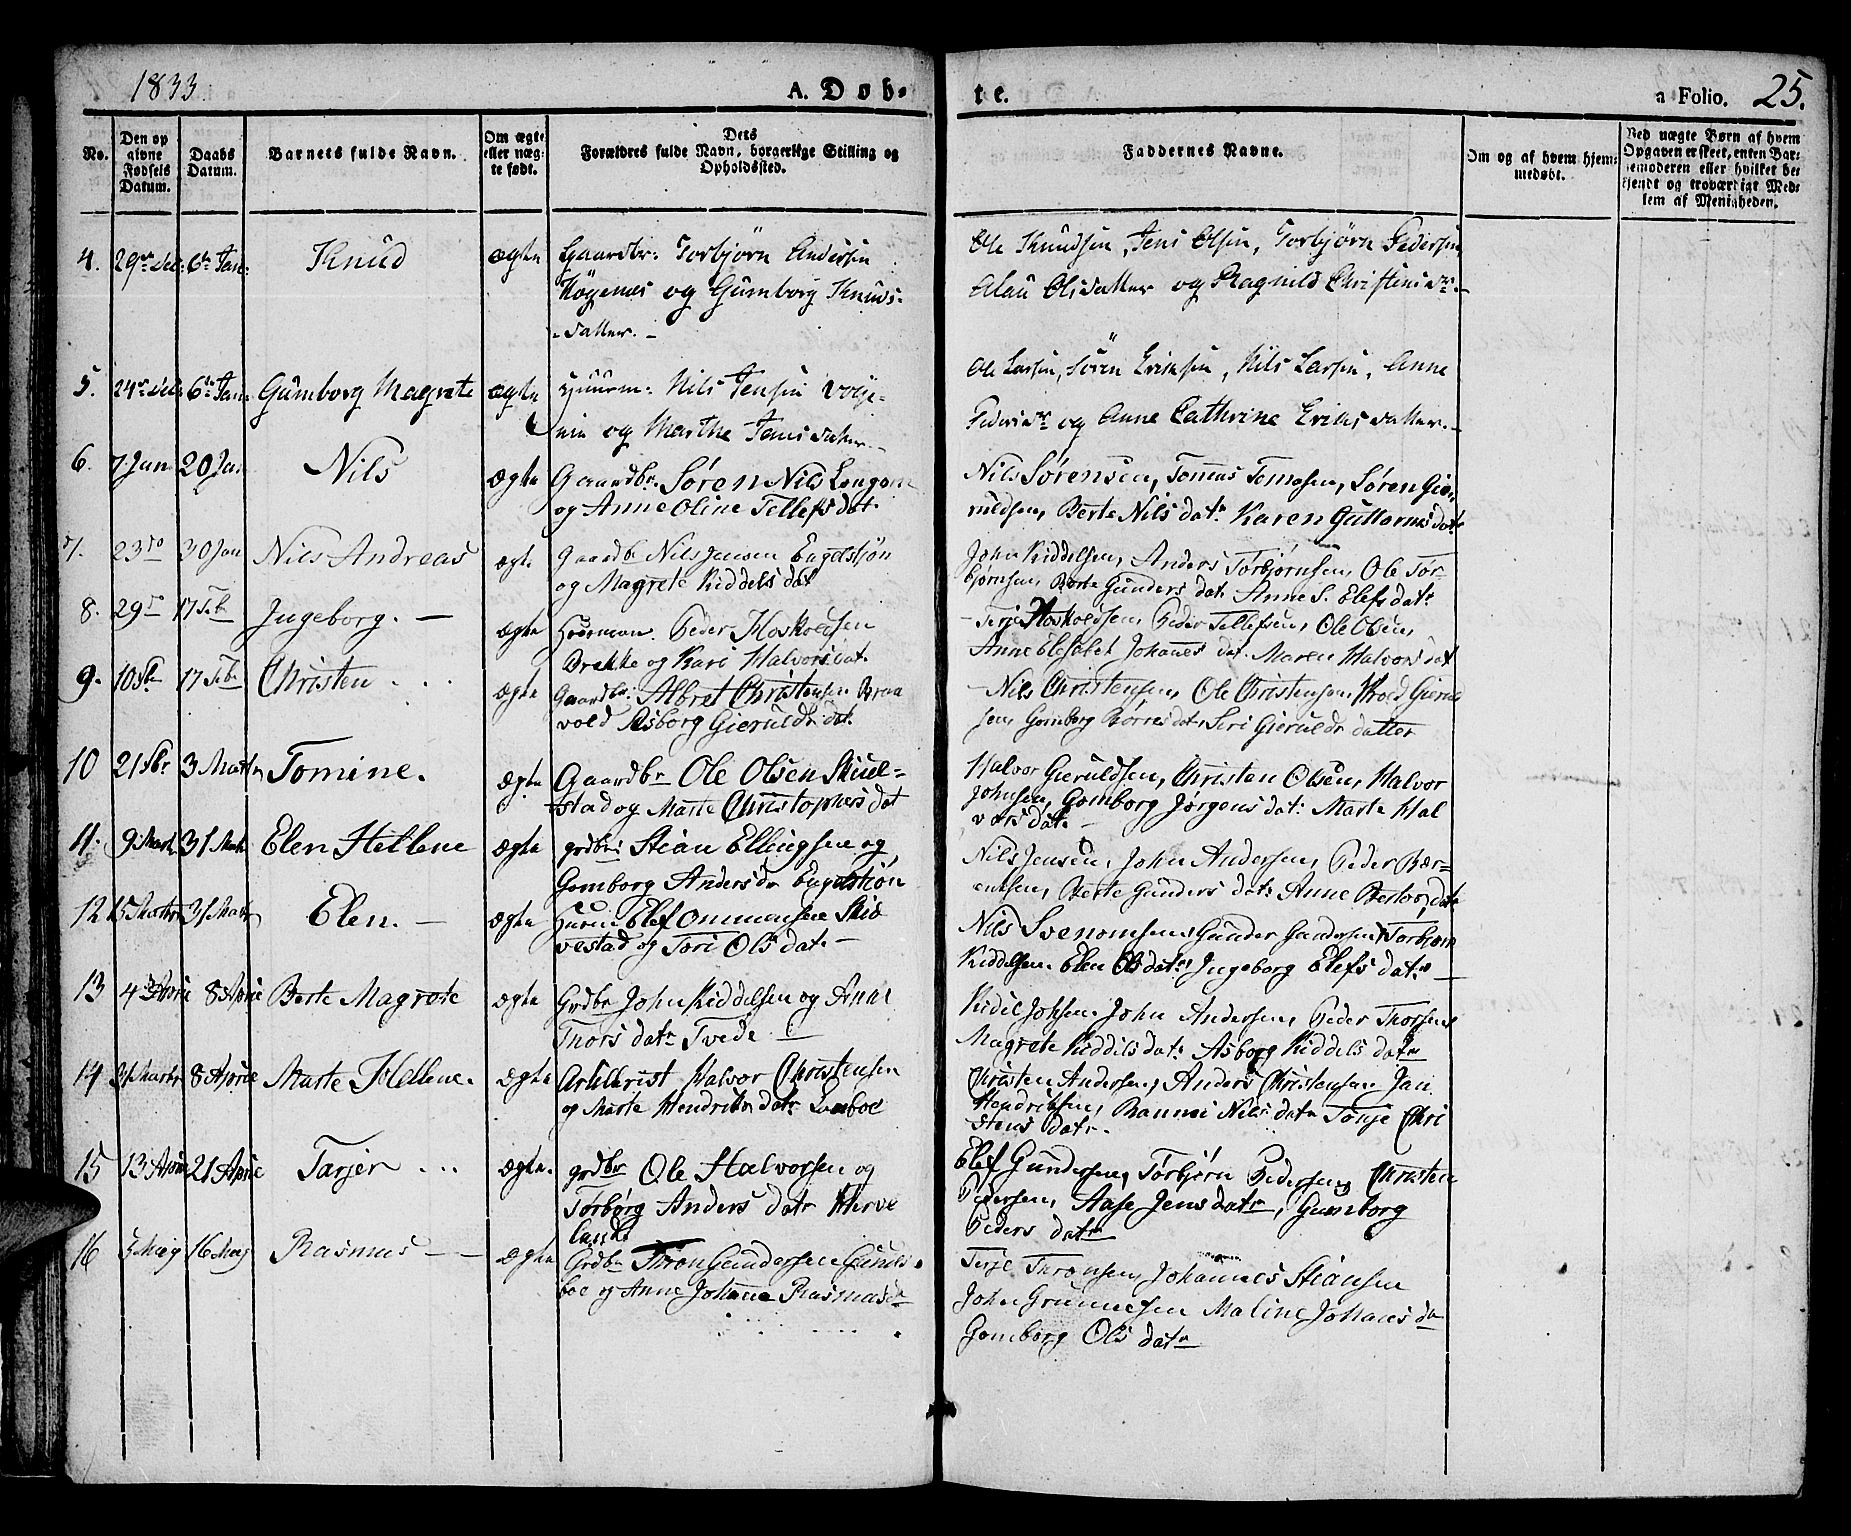 1833. A. Døb- te. a Folio. 25.
No.
Den opgivne Fødsels Datum.
Daabs Datum.
Barnets fulde Navn.
Om ægte eller uægte født.
Dets Forældres fulde Navn, borgerlige Stilling og Opholdssted.
Faddernes Navne.
Om og af hvem hjemmedøbt.
Ved uægte Børn af hvem Opgaven er skeet, enten Barnemoderen eller hvilket bekjendt og troværdigt Medlem af Menigheden.
4. 29 6te Jan: Knud ægte Gaardbr: Torbjörn Andersen
og Gumborg Knuds-
datter. -
Ole Knudsen, Jens Olsen, Torbjörn Pedersen,
Olsdatter og Ragnild
5. 24 6te Jan: Gumborg Magrete ægte Nils Jensen
og Marthe Jensdatter
Ole Larsen, Sören Eriksen, Nils Larsen, Anne
og Anne Cathrine Eriksdatter. -
6. 7 Jan 20 Jan Nils ægte Gaardbr. Søren Nils
og Anne Oline Tellefs dat.
Nils Sørensen, Tomas Tomesen, Søren Gie-
ruldsen, Berte Nils datr. Karen Guttorms datr
7. 23 30 Jan Nils Andreas ægte Gaardb Nils Jensen Engelstiøn
og Magrete Kiddels dat
John Kiddelsen, Anders Torbjørnsen, Ole Tor-
bjørnsen, Berte Gunders dat. Anne S. Elefs datr
8. 29 17 Feb Ingeborg. - ægte Huusman. Peder Hoskoldsen
Brekke og Kari Halvors dat.
- Terje Hoskoldsen, Peder Tellefsen, Ole Olsen,
Anne Elesabet Johannes dat. Maren Halvors dat
9. 10 Fb 17 Feb Christen . . . ægte Gaardbr: Albret Christensen Braa
vold Asborg Gieruldr dat.
- Nils Christensen, Ole Christensen, Gierul
sen, Gomborg Børres datr, Siri Gieruldr datter
10 21 Fbr 3 Marts Tomine. ægte Gaardbr Ole Olsen Skiul=
stad og Marte Christophers dat
Halvor Gieruldsen, Christen Olsen, Halvor
Johnsen, Gomborg Jørgens dat: Marte Hal
vors dat. -
11. 9 Marts 31 Marts Elen Hellene ægte grdbr: Stian Ellingsen og
Gomborg Anders dr Engelstiøn
Nils Jensen, John Andersen, Peder Bær-
entsen, Berte Gunders datr Anne dat
12 15 Marts 31 Marts Elen. - ægte Elef Ommensen Skib
vestad og Tori Ols dat. -
Nils Svenomsen, Gunder Gundersen, Torbjørn
Kiddelsen. Elen Ols datr, Ingeborg Elefs datr -
13 4 April 8 April Berte Magrete ægte Grdbr John Kiddelsen og Anne
Thors datr Tvede -
Kidel Johsen. John Andersen, Peder Thorsen
Magrete Kiddels dat: Asborg Kiddels datr
14 21 Marts 8 April Marte Hellene. ægte Artillrist Halvor Christensen
og Marte Hendriks datr
Christen Andersen, Anders Christensen Jan
Hendriksen, Nils datr Tonje Chri
stens datr.
15 13 April 21 April Tarjer . . . ægte. grdbr Ole Halvorsen og
Torborg Anders datr Herve
lande
Elef Gundersen, Torbjørn Pedersen, Christen
Pedersen, Aase Jens datr, Gumborg
Peders datr
16 5 Maij 16 Maij Rasmus - - ægte Grdbr Thron Gundersen Gunds-
boe og Anne Johanne Rasmusdr
Terje Thronsen, Johannes Stiansen
John Grunnesen Maline Johans da
Gomborg Ols datr